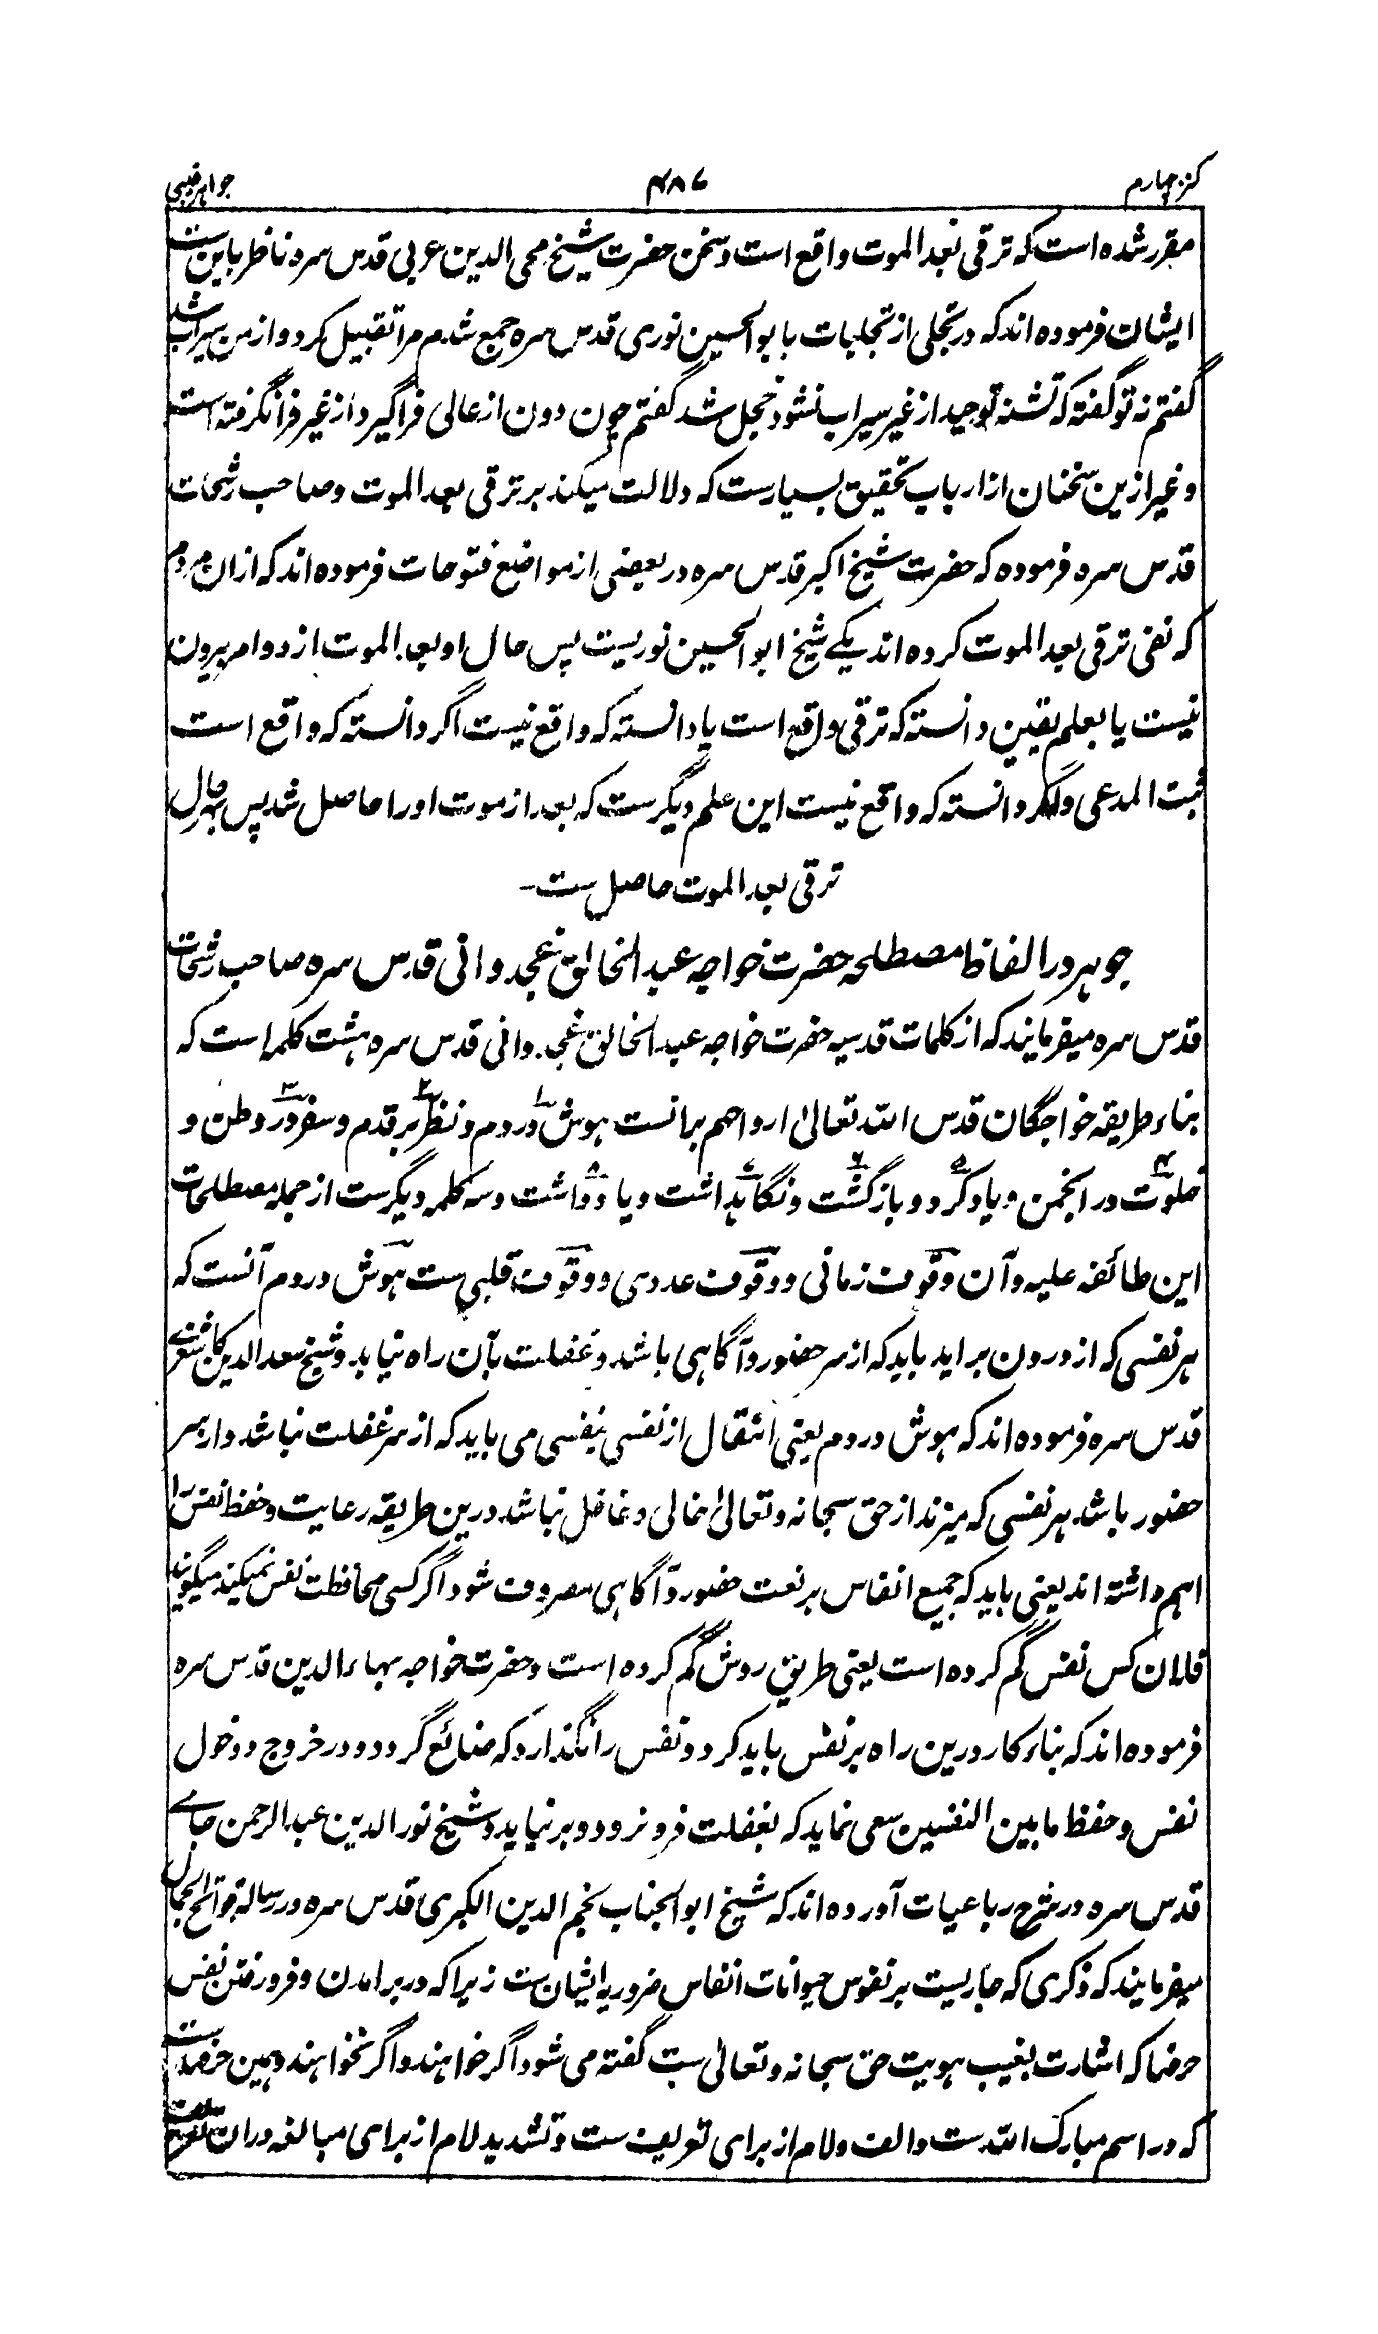 کنز چهارم ۴۸۷ جواهر غیبی
مقرر شده است که ترقی بعد الموت واقع است و سخن حضرت شیخ محی الدین عربی قدس سره ناظر باین ست
ایشان فرموده اند که در تجلی از تجلیات با ابو الحسین نوری قدس سره جمع شدم مرا تقبیل کرد و از من سیراب شد
گفتم نه تو گفته که تشنه توحید از غیر سیراب نشود خجل شد گفتم چون دون از عالی فرا گیرد از غیر فرا نگرفته است
و غیر ازین سخنان از ارباب تحقیق بسیارست که دلالت میکند بر ترقی بعد الموت و صاحب رشحات
قدس سره فرموده که حضرت شیخ اکبر قدس سره در بعضی از مواضع فتوحات فرموده اند که ازان مردم
که نفی ترقی بعد الموت کرده اند یکے شیخ ابو الحسین نوریست پس حال او بعد الموت از دو امر بیرون
نیست یا بعلم یقین دانسته که ترقی واقع است یا دانسته که واقع نیست اگر دانسته که واقع است
ثبت المدعی و اگر دانسته که واقع نیست این علم دیگرست که بعد از موت او را حاصل شد پس بهر حال
ترقی بعد الموت حاصل ست
جوهر در الفاظ مصطلحه حضرت خواجه عبد الخالق غجدوانی قدس سره صاحب رشحات
قدس سره میفرمایند که از کلمات قدسیه حضرت خواجه عبد الخالق غجدوانی قدس سره هشت کلمه است که
بناء طریقه خواجگان قدس الله تعالیٰ ارواحهم برانست هوش در دم و نظر بر قدم و سفر در وطن و
خلوت در انجمن و یاد کرد و بازگشت و نگاهداشت و یاد داشت و سه کلمه دیگرست از جمله مصطلحات
این طائفه علیه و آن وقوف زمانی و وقوف عددی و وقوف قلبی ست هوش در دم آنست که
هر نفسی که از درون براید باید که از سر حضور و آگاهی باشد و غفلت بآن راه نیابد و شیخ سعد الدین کاشغرے
قدس سره فرموده اند که هوش در دم یعنی انتقال از نفسی بنفسی می باید که از سر غفلت نباشد و از سر
حضور باشد هر نفسی که میزند از حق سبحانه و تعالیٰ خالی و غافل نباشد درین طریقه رعایت و حفظ نفس را
اهم داشته اند یعنی باید که جمیع انفاس بر نعت حضور و آگاهی مصروف شود اگر کسی محافظت نفس نمیکند میگویند
فلان کس نفس گم کرده است یعنی طریق روش گم کرده است و حضرت خواجه بهاء الدین قدس سره
فرموده اند که بناء کار درین راه بر نفس باید کرد و نفس را نگذارد که ضائع گردد و در خروج و دخول
نفس و حفظ ما بین النفسین سعی نماید که بغفلت فرو نرود و بر نیاید و شیخ نور الدین عبد الرحمن جامے
قدس سره در شرح رباعیات آورده اند که شیخ ابو الجناب نجم الدین الکبری قدس سره در رساله فواتح الجمال
میفرمایند که ذکری که جاریست بر نفوس حیوانات انفاس ضروریه ایشان ست زیرا که در بر امدن و فرو رفتن نفس
حرف ها که اشارت بغیب هویت حق سبحانه و تعالیٰ ست گفته می شود اگر خواهند و اگر نخواهند و همین حرف هاست
که در اسم مبارک الله ست و الف و لام از برای تعریف ست و تشدید لام از برای مبالغه دران